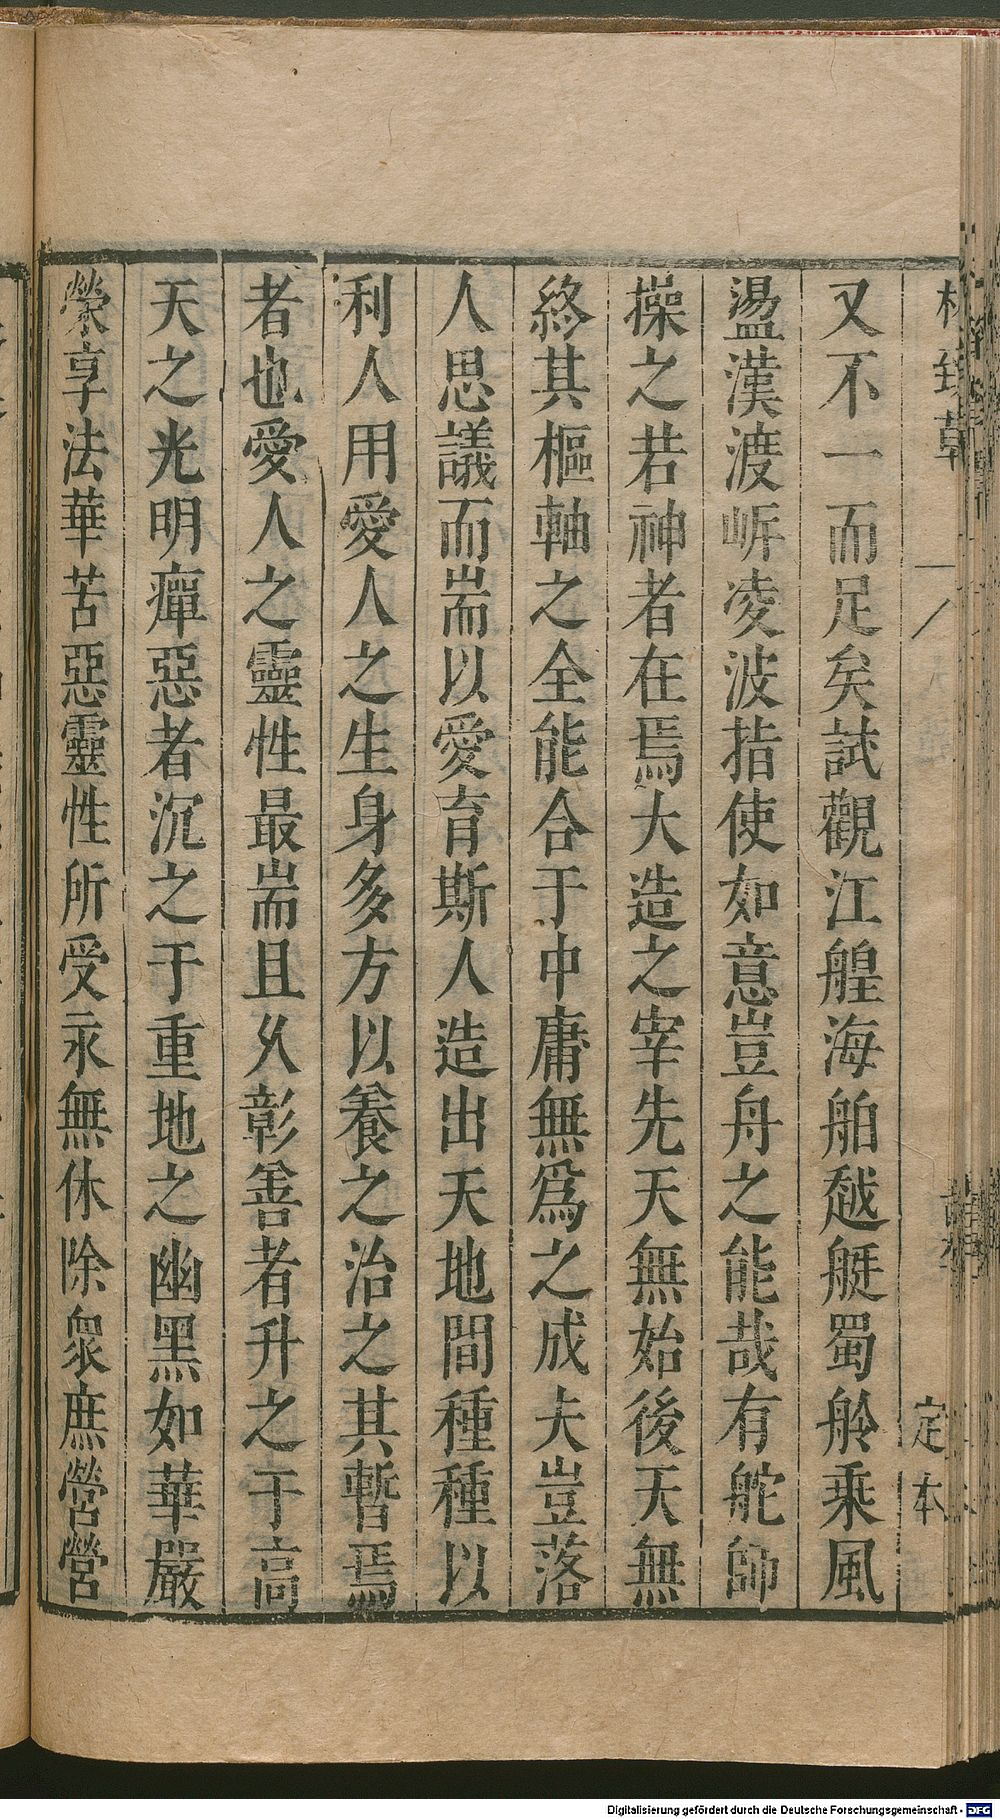 又不一而足矣試觀江艎海舶越艇蜀舲乘風
盪漢渡㟁凌波指使如意豈舟之能哉有舵師
操之若神者在焉大造之宰先天無始後天無
終其樞軸之全能合于中庸無爲之成夫豈落
人思議而耑以愛育斯人造出天地間種種以
利人用愛人之生身多方以養之治之其暫焉
者也愛人之靈性最耑且久彰善者升之于高
天之光明癉惡者沉之于重地之幽黑如華嚴
榮享法華苦惡靈性所受永無休除衆庶營營
定本
Digitalisierung gefördert durch die Deutsche Forschungsgemeinschaft - DFG